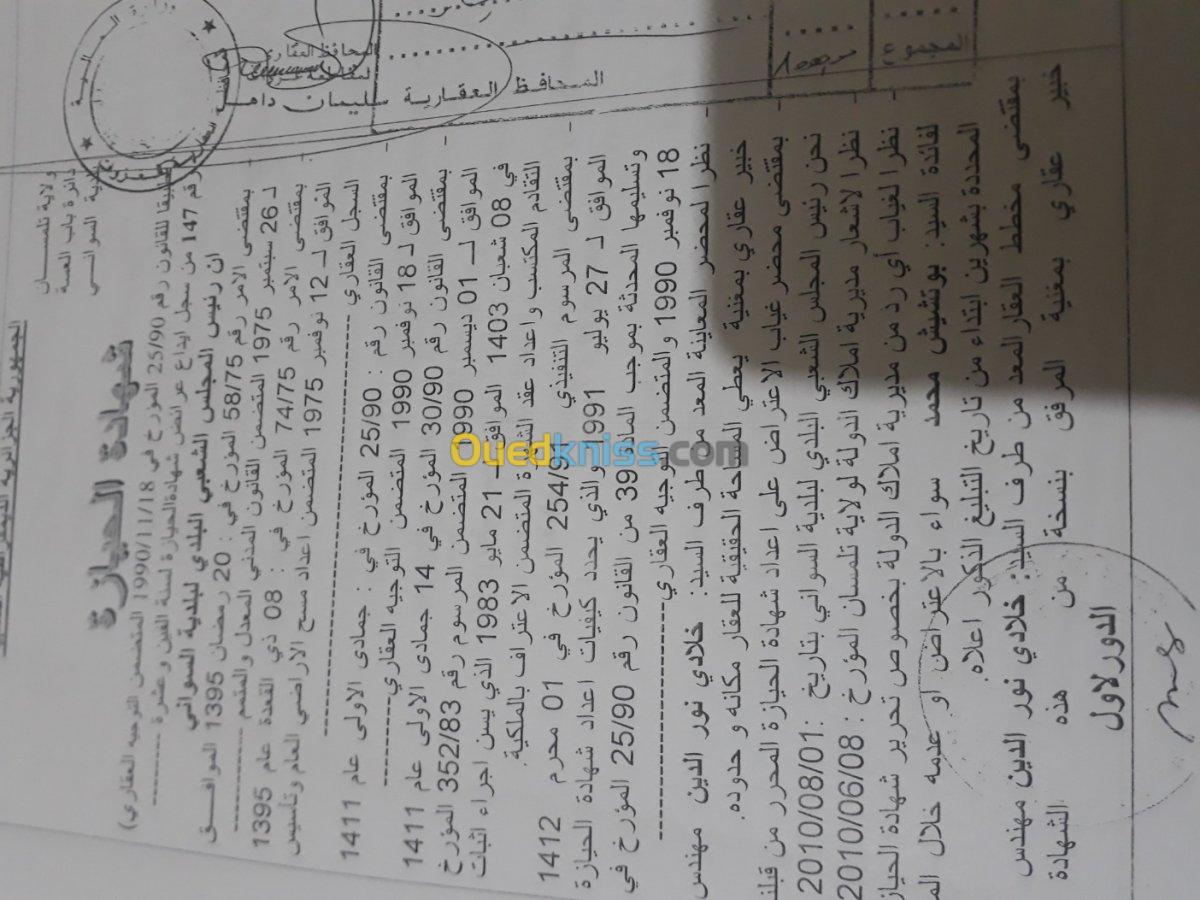 الجمهورية الجزائرية الديمقراطية
ولاية تلمسان
دائرة باب العسة
بلدية السواني
شهادة الحيازة
طبقا للقانون رقم 25/90 المؤرخ في 1990/11/18 المتضمن التوجيه العقاري)
رقم 147 من سجل ايداع عرائض شهادة الحيازة لسنة الفين وعشرة
ان رئيس المجلس الشعبي البلدي لبلدية السواني
بمقتضى الامر رقم 58/75 المؤرخ في : 20 رمضان 1395 الموافق
لـ 26 سبتمبر 1975 المتضمن القانون المدني المعدل والمتمم
بمقتضى الامر رقم 74/75 المؤرخ في : 08 ذي القعدة عام 1395
الموافق لـ 12 نوفمبر 1975 المتضمن اعداد مسح الاراضي العام وتاسيس
السجل العقاري
بمقتضى القانون رقم : 25/90 المؤرخ في : جمادى الاولى عام 1411
الموافق لـ 18 نوفمبر 1990 المتضمن التوجيه العقاري
بمقتضى القانون رقم 30/90 المؤرخ في 14 جمادى الاولى عام 1411
الموافق لـ 01 ديسمبر 1990 المتضمن المرسوم رقم 352/83 المؤرخ
في 08 شعبان 1403 الموافق 21 مايو 1983 الذي يسن اجراء اثبات
التقادم المكتسب واعداد عقد الشهرة المتضمن الاعتراف بالملكية.
بمقتضى المرسوم التنفيذي 254/9 المؤرخ في 01 محرم 1412
الموافق لـ 27 يوليو 1991 والذي يحدد كيفيات اعداد شهادة الحيازة
وتسليمها المحدثة بموجب المادة 39 من القانون رقم 25/90 المؤرخ في
18 نوفمبر 1990 والمتضمن التوجيه العقاري
نظرا لمحضر المعاينة المعد من طرف السيد: خلادي نور الدين مهندس
خبير عقاري بمغنية يعطي المساحة الحقيقية للعقار مكانه و حدوده.
بمقتضى محضر غياب الاعتراض على اعداد شهادة الحيازة المحرر من قبلنا
نحن رئيس المجلس الشعبي البلدي لبلدية السواني بتاريخ : 2010/08/01
نظرا لاشعار مديرية املاك الدولة لولاية تلمسان المؤرخ : 2010/06/08
نظرا لغياب أي رد من مديرية املاك الدولة بخصوص تحرير شهادة الحياز
لفائدة السيد: بوتشيش محمد سواء بالاعتراض او عدمه خلال الم
المحددة بشهرين ابتداء من تاريخ التبليغ الذكور اعلاه.
بمقتضى مخطط العقار المعد من طرف السيد: خلادي نور الدين مهندس
خبير عقاري بمغنية المرفق بنسخة من هذه الشهادة
الدور لاول
المجموع
المحافظ العقاري
المحافظ العقارية سليمان داهـ
Ouedkniss.com